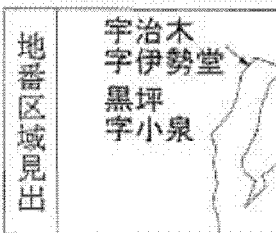 地番区域見出
宇治木
字伊勢堂
黒坪
字小泉